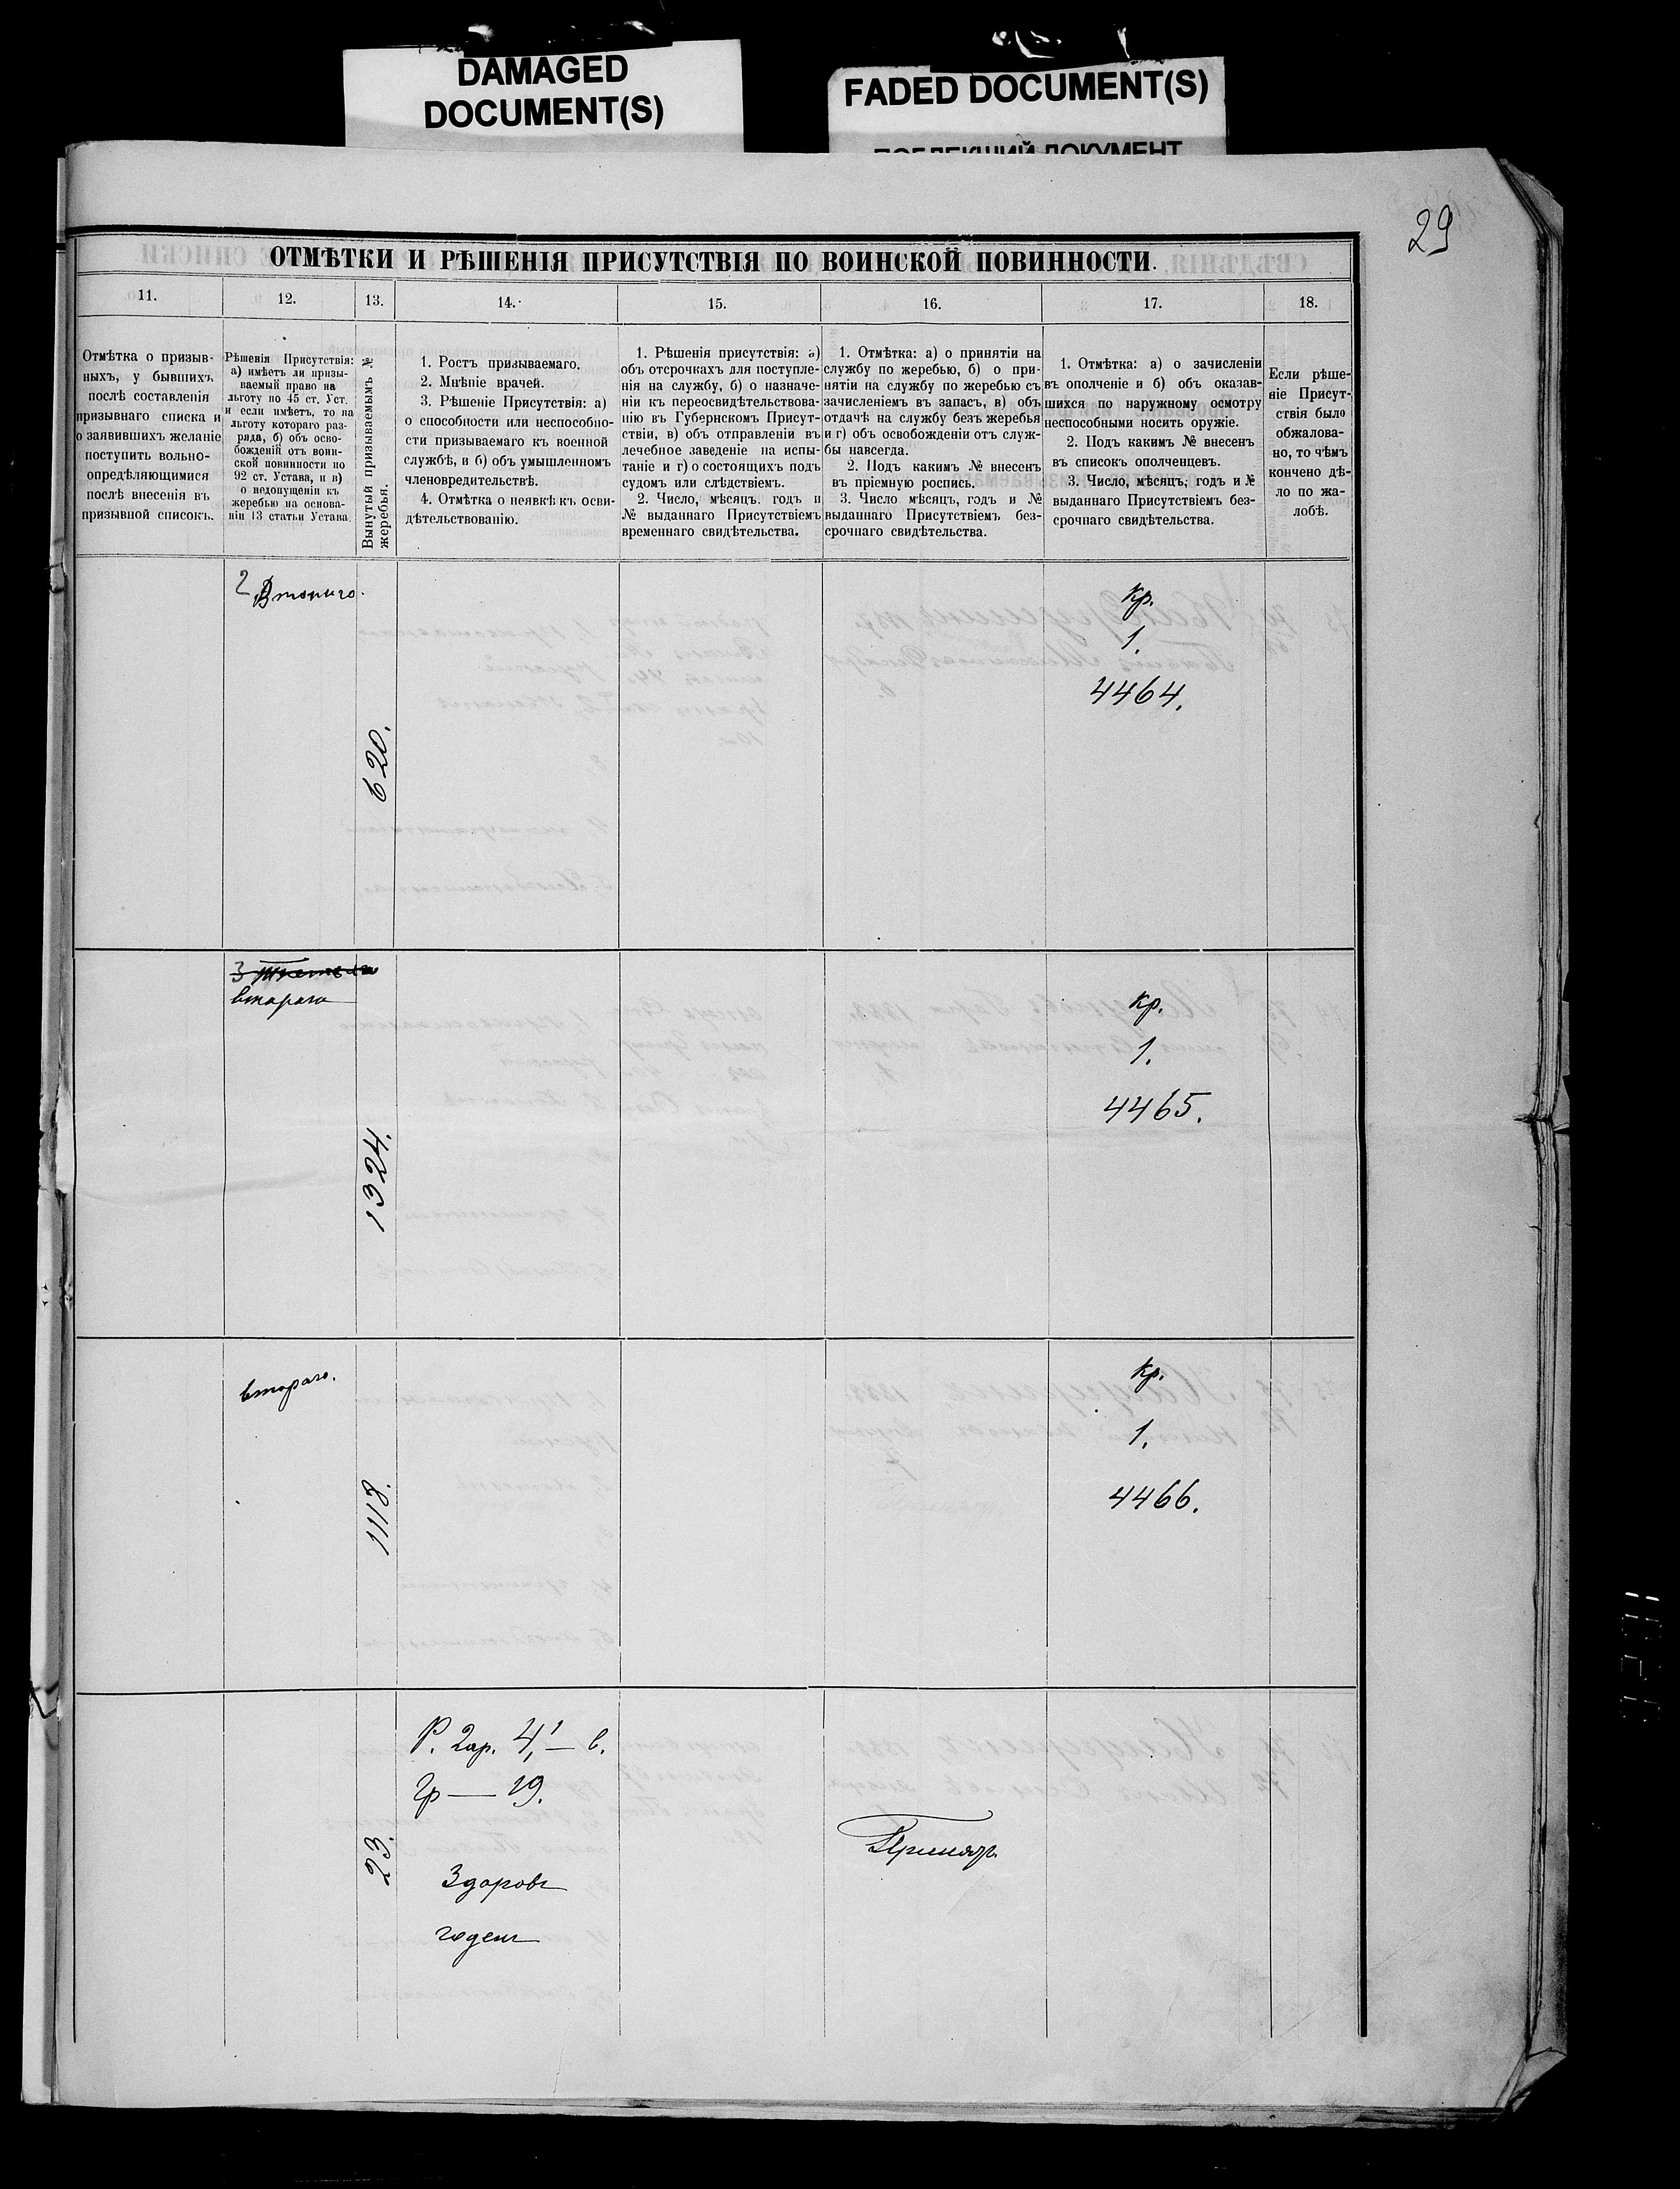 DAMAGED
DOCUMENT(S)
FADED DOCUMENT(S)
29
ОТМѢТКИ И РѢШЕНІЯ ПРИСУТСТВІЯ ПО ВОИНСКОЙ ПОВИННОСТИ.
11.
12.
13.
14.
15.
16.
17.
18.
Отмѣтка о призыв-
ныхъ, у бывшихъ
послѣ составленія
призывнаго списка и
о заявившихъ желаніе
поступить вольно-
опредѣляющимися
послѣ внесенія въ
призывной списокъ.
Рѣшенія Присутствія:
а) имѣетъ ли призы-
ваемый право на
льготу по 45 ст. Уст.
и если имѣетъ, то на
льготу котораго раз-
ряда, б) объ осво-
божденій отъ воин-
ской повинности по
92 ст. Устава, и в)
о недопущеніи къ
жеребью на основа-
ніи 13 статьи Устава.
Вынутый призываемымъ №
жеребья.
1. Ростъ призываемаго.
2. Мнѣніе врачей.
3. Рѣшеніе Присутствія: а)
о способности или неспособно-
сти призываемаго къ военной
службѣ, и б) объ умышленномъ
членовредительствѣ.
4. Отмѣтка о неявкѣ къ осви-
дѣтельствованію.
1. Рѣшенія присутствія: а)
объ отсрочкахъ для поступле-
нія на службу, б) о назначе-
ніи къ переосвидѣтельствова-
нію въ Губернскомъ Присут-
ствіи, в) объ отправленіи въ
лечебное заведеніе на испы-
таніе и г) о состоящихъ подъ
судомъ или слѣдствіемъ.
2. Число, мѣсяцъ, годъ и
№ выданнаго Присутствіемъ
временнаго свидѣтельства.
1. Отмѣтка: а) о принятіи на
службу по жеребью, б) о при-
нятіи на службу по жеребью съ
зачисленіемъ въ запасъ, в) объ
отдачѣ на службу безъ жеребья
и г) объ освобожденіи отъ служ-
бы навсегда.
2. Подъ какимъ № внесенъ
въ пріемную роспись.
3. Число мѣсяцъ, годъ и №
выданнаго Присутствіемъ без-
срочнаго свидѣтельства.
1. Отмѣтка: а) о зачисленіи
въ ополченіе и б) объ оказав-
шихся по наружному осмотру
неспособными носить оружіе.
2. Подъ какимъ № внесенъ
въ списокъ ополченцевъ.
3. Число, мѣсяцъ, годъ и №
выданнаго Присутствіемъ без-
срочнаго свидѣтельства.
Если рѣше-
ніе Присут-
ствія было
обжалова-
но, то чѣмъ
кончено дѣ-
ло по жа-
лобѣ.
2 Втораго.
620.
Кр.
1.
4464.
3 третьяго
втараго
1324.
Кр.
1.
4465.
втораго.
1118.
Кр.
1.
4466.
23.
Р. 2ар. 4,1 — в.
Гр — 19.
Здоровъ
годенъ
Принятъ